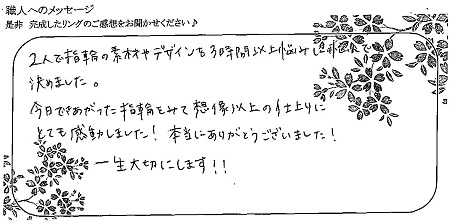 職人へのメッセージ
是非 完成したリングのご感想をお聞かせください♪
2人で指輪の素材やデザインを3時間以上悩み
決めました。
今日できあがった指輪をみて想像以上の仕上りに
とても感動しました！本当にありがとうございました！
一生大切にします！！